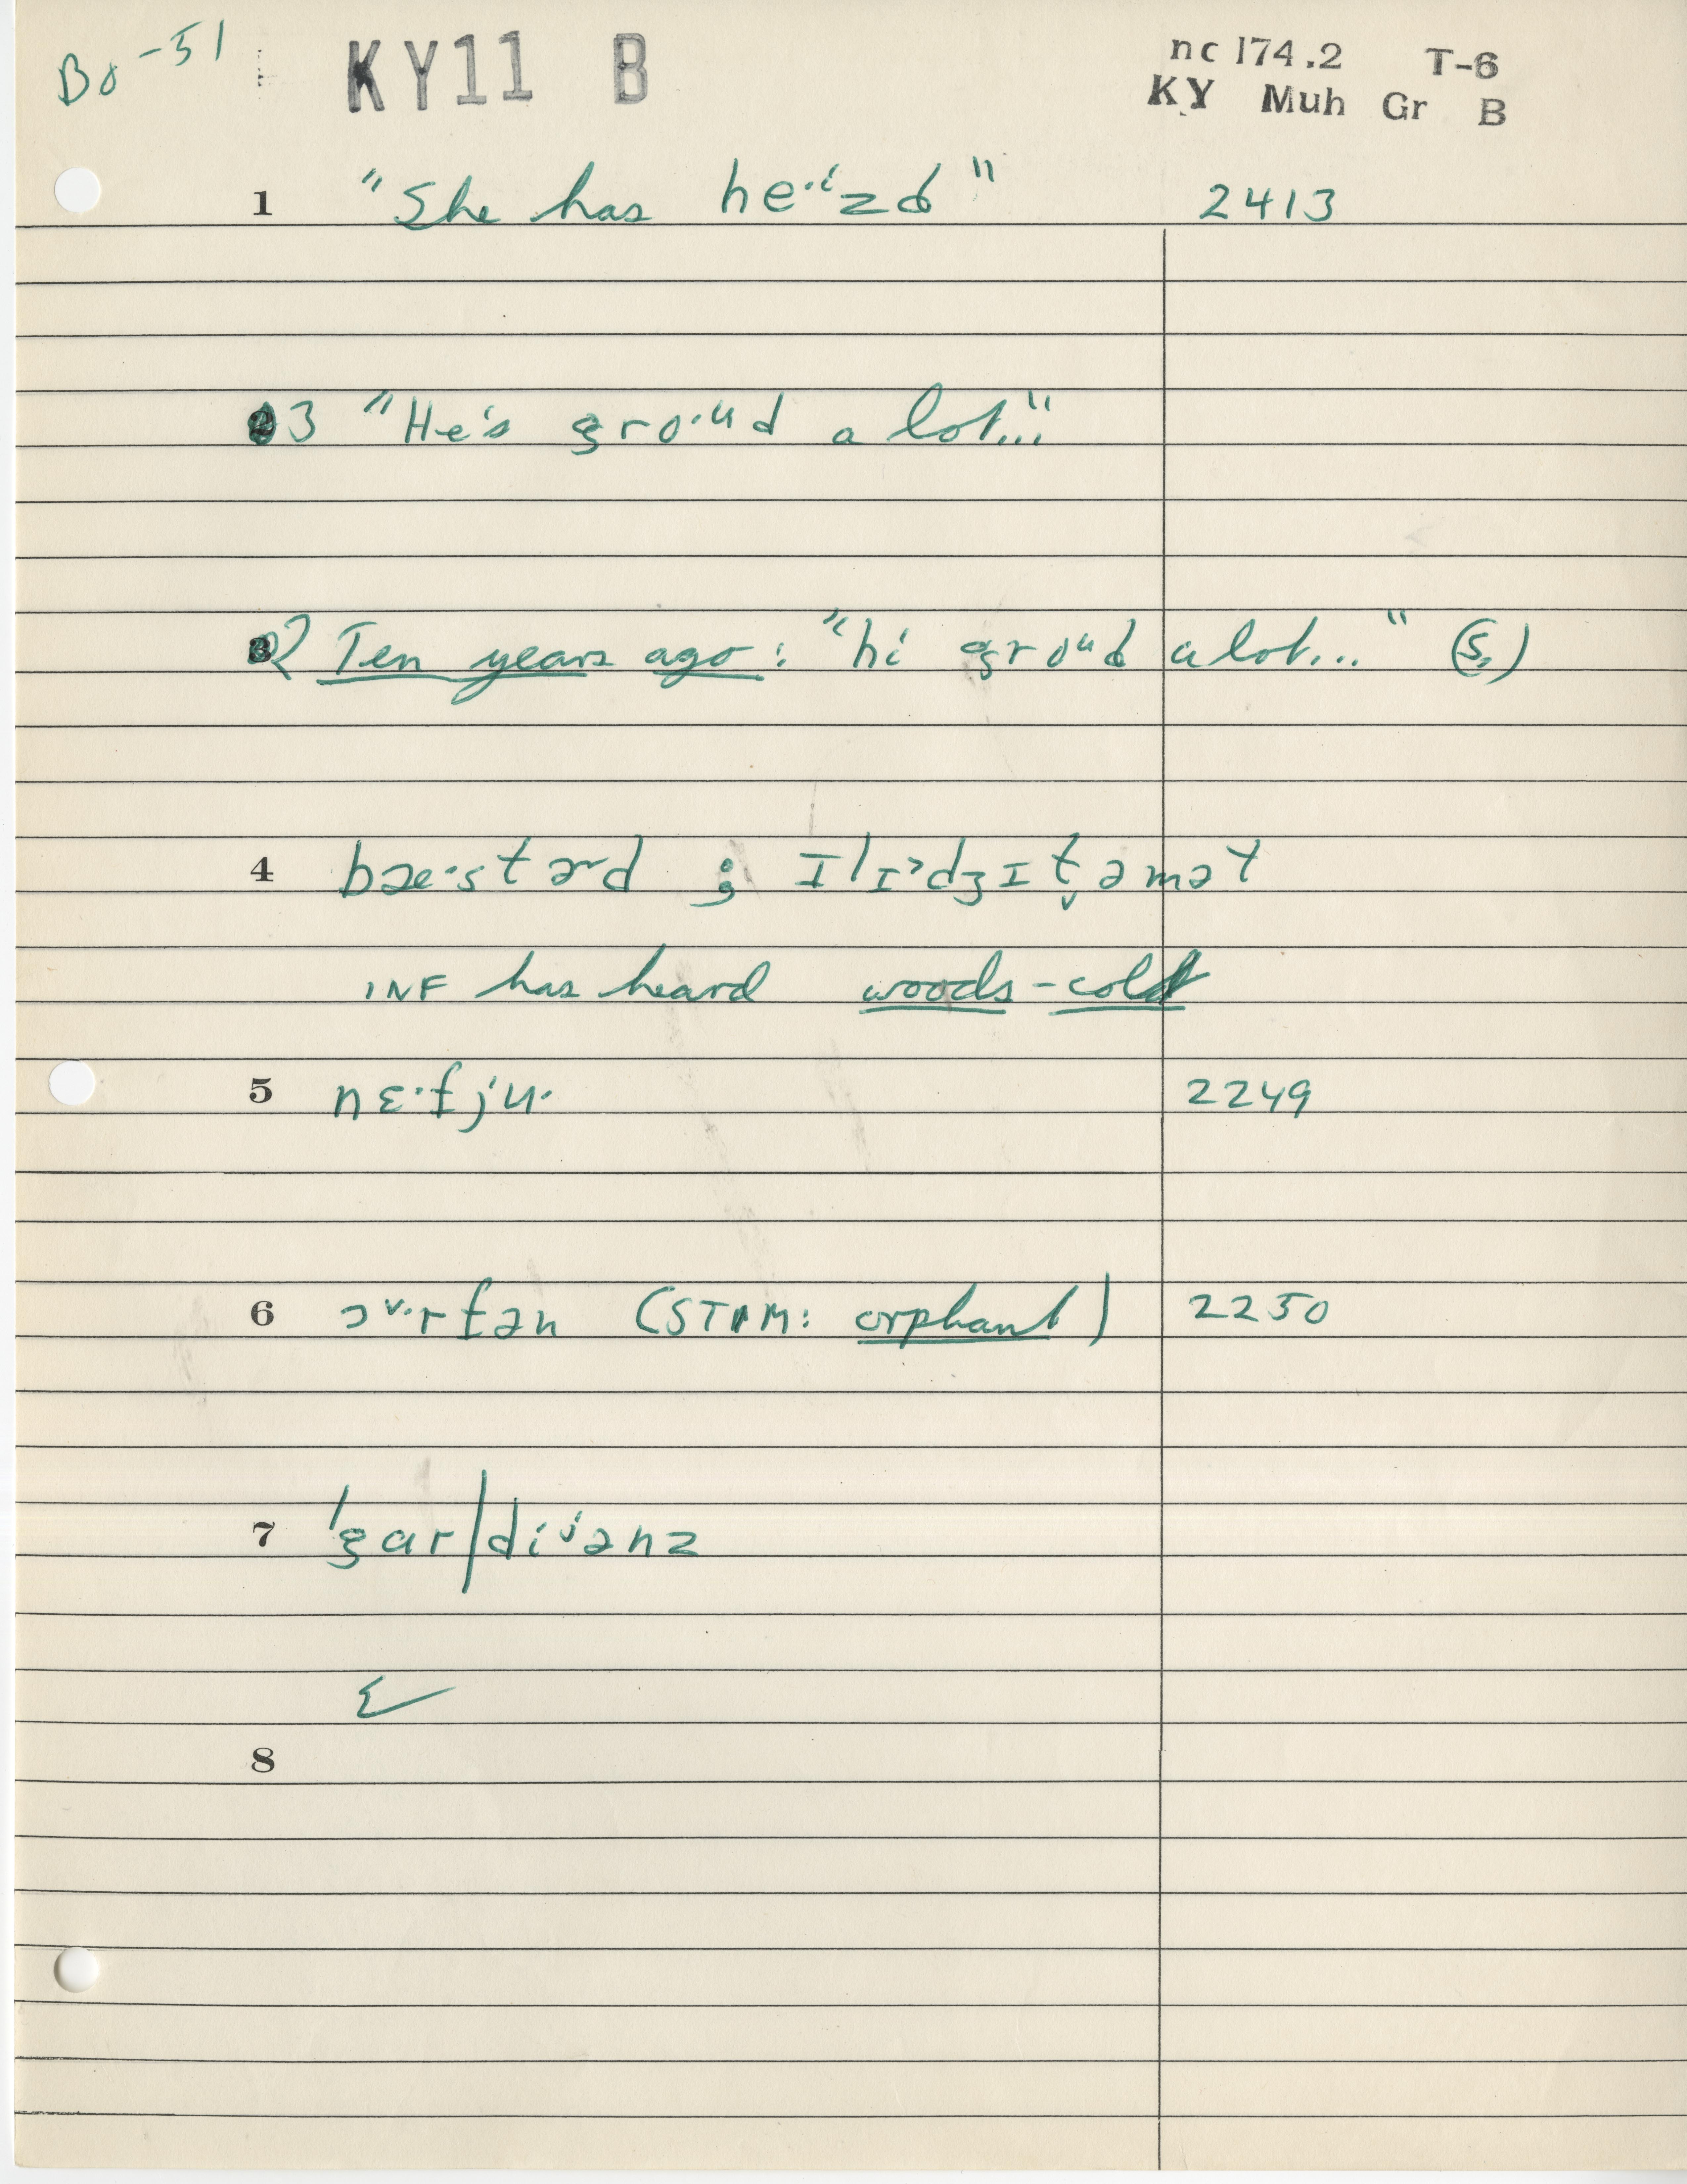 Bo-51 KY11 B nc 174.2 T-6
KY Muh Gr B
1 "She has he·ⁱzd" 2413
3 "He's gro·ᵘd a lot..."
2 Ten years ago: "hi groᵘd a lot..." (S.)
4 bæ·stɚd ; ɪlɪᵊdʒɪt̬əmət
INF has heard woods-colt
5 nɛ·fju· 2249
6 ɔᵛ·rfən (STAM: orphant) 2250
7 'gar|diʲənz
Σ
8